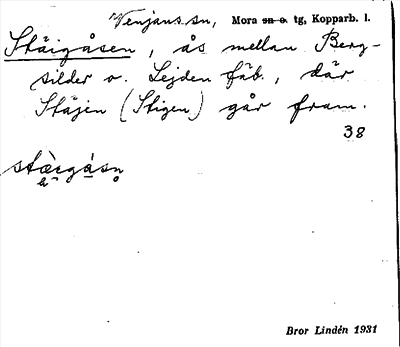 Venjans sn, Mora sn o. tg, Kopparb. l.
Stäigåsen, ås mellan Berg-
silder o. Lejden fäb., där
Stäjen (Stigen) går fram.
38
Bror Lindén 1931